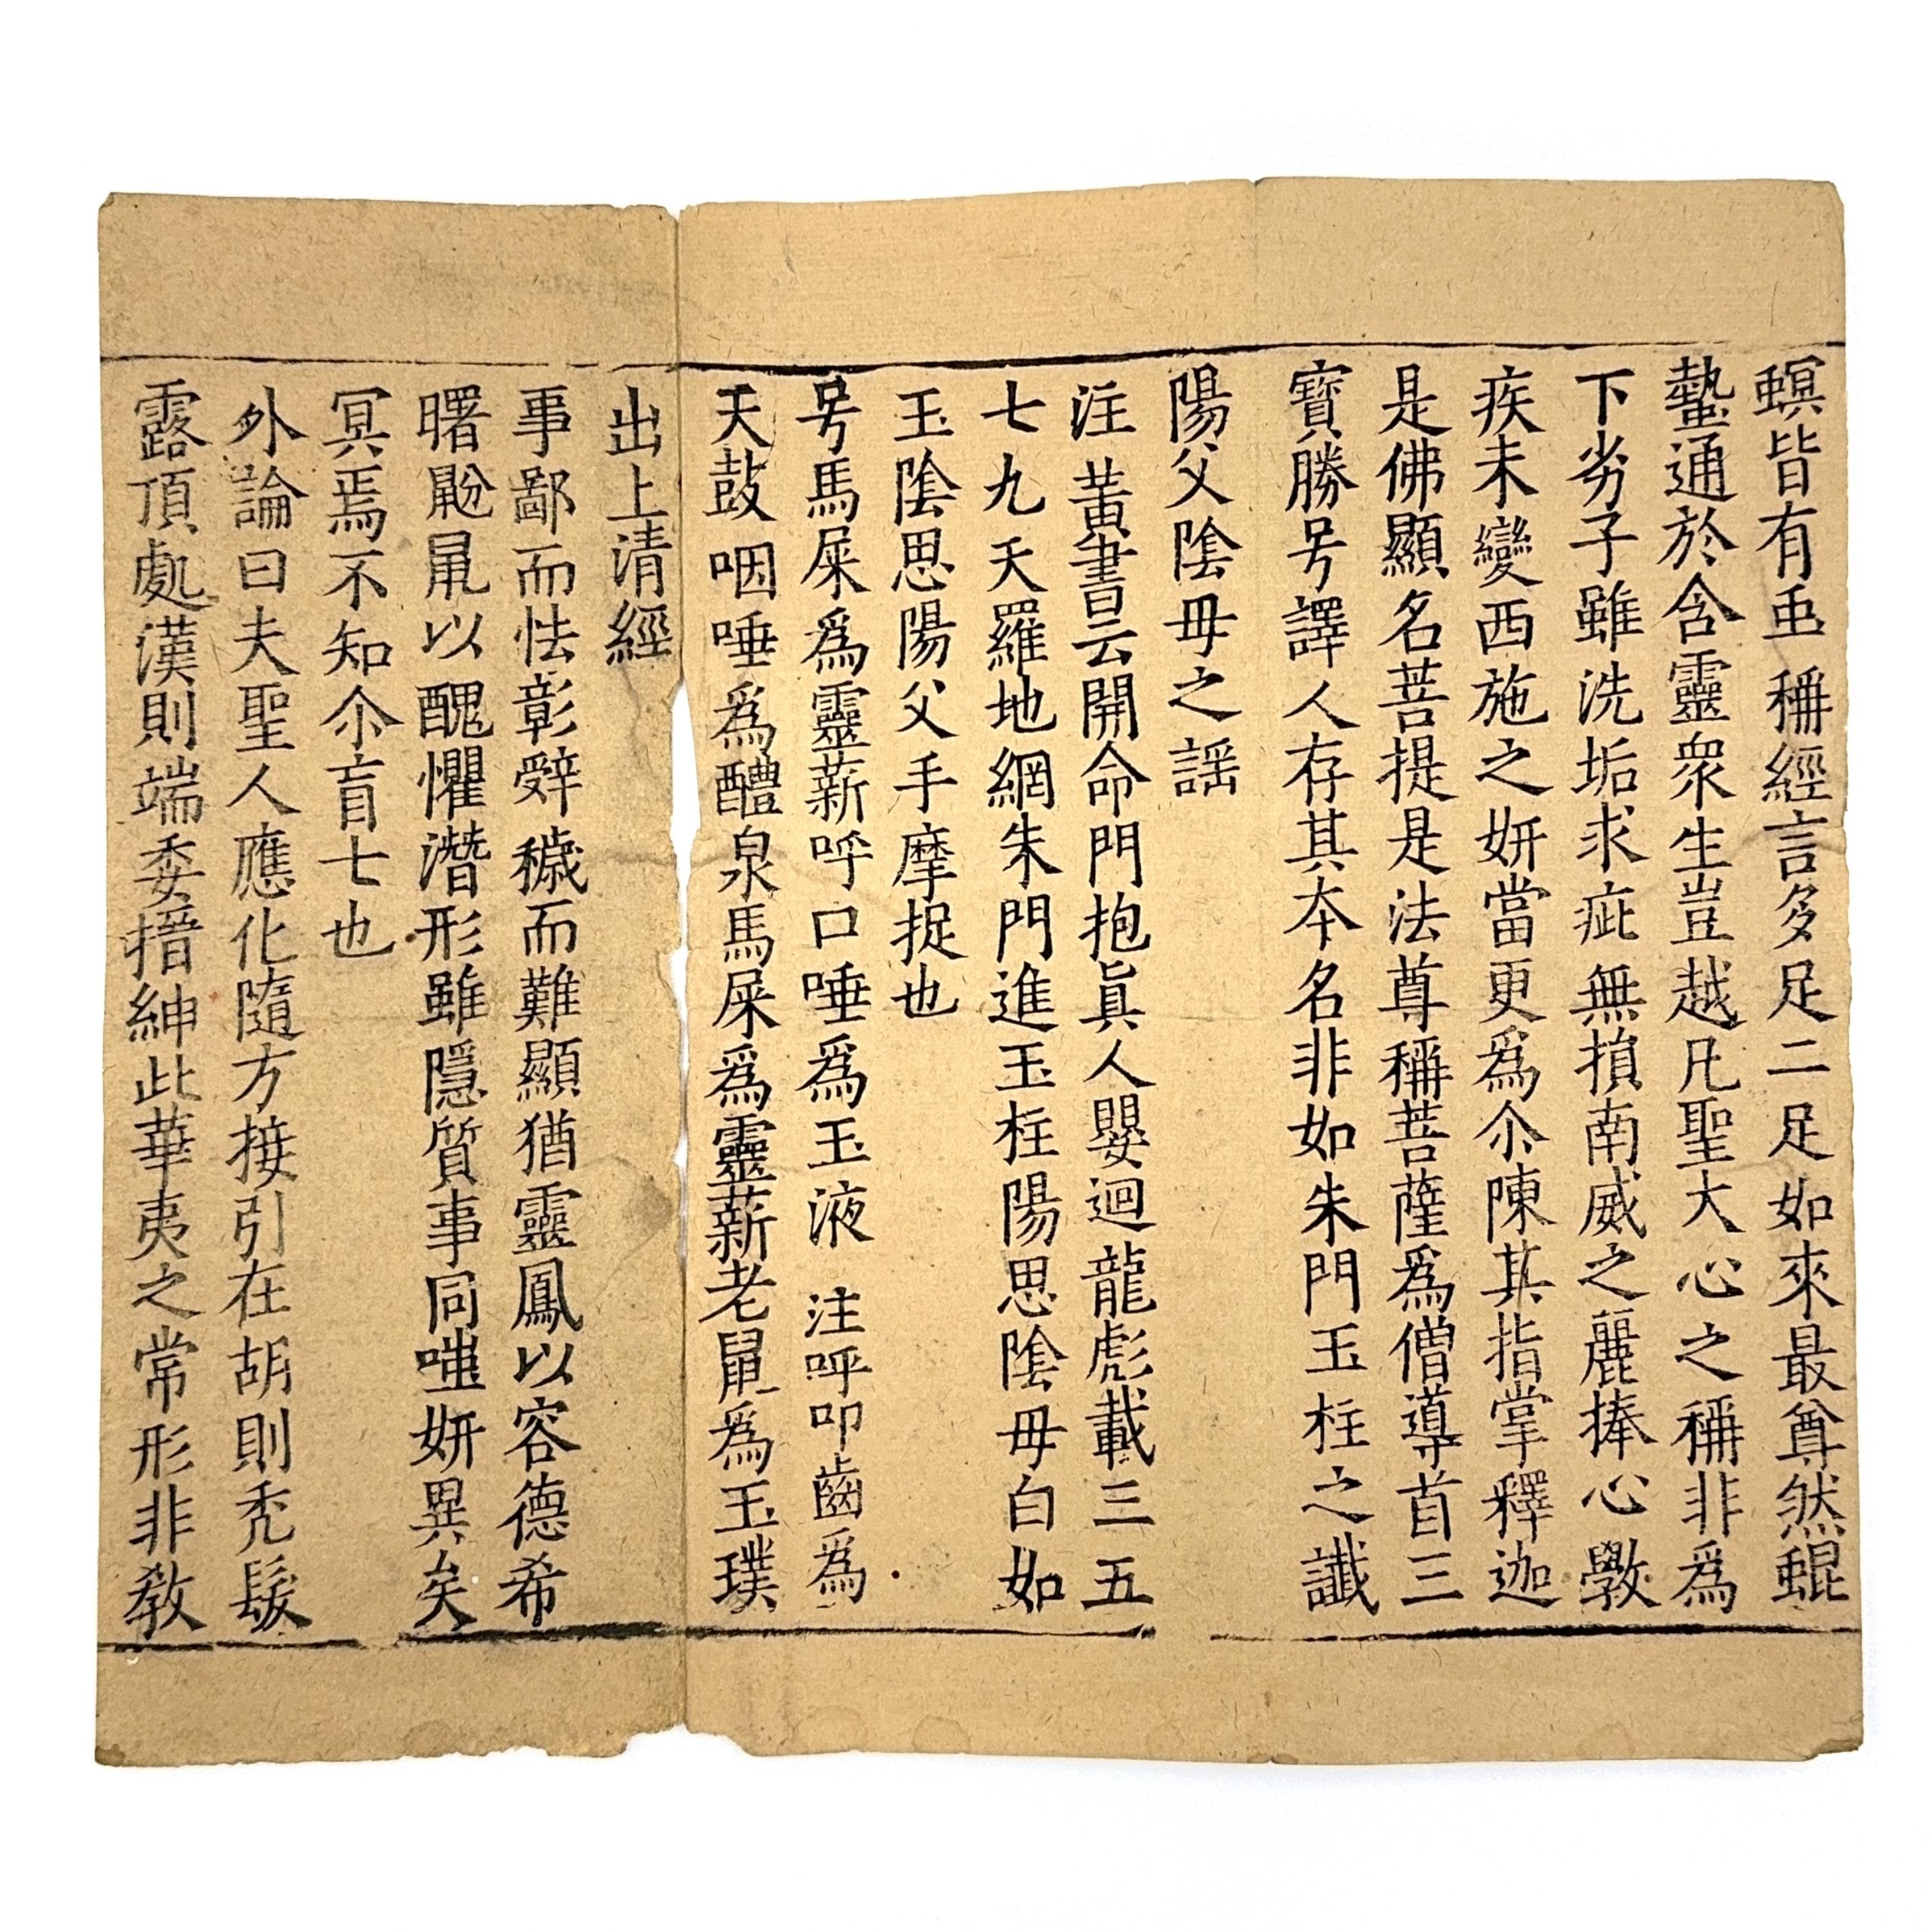 螟皆有䖝稱經言多足二足如來最尊然蜫
蟄通於含靈衆生豈越凡聖大心之稱非爲
下劣子雖洗垢求疵無損南威之麗捧心斆
疾未變西施之妍當更爲尒陳其指掌釋迦
是佛顯名菩提是法尊稱菩薩爲僧導首三
寶勝号譯人存其夲名非如朱門玉柱之讖
陽父陰母之謡
注黃書云開命門抱眞人嬰迴龍彪載三五
七九天羅地網朱門進玉柱陽思陰母白如
玉陰思陽父手摩捉也
号馬屎爲靈薪呼口唾爲玉液注呼叩齒爲
天鼓咽唾爲醴泉馬屎爲靈薪老鼠爲玉璞
出上清經
事鄙而怯彰辤穢而難顯猶靈鳳以容德希
曙鼢鼠以醜懼潛形雖隱質事同嗤妍異矣
冥焉不知尒盲七也
外論曰夫聖人應化隨方接引在胡則禿髮
露頂處漢則端委搢紳此華夷之常形非教